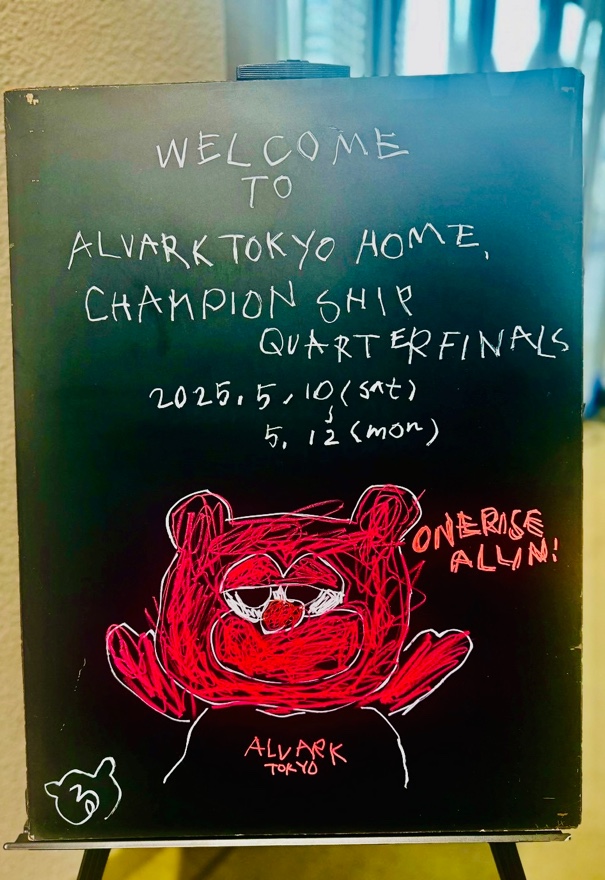 WELCOME
TO
ALVARK TOKYO HOME,
CHAMPION SHIP
QUARTERFINALS
2025.5.10(sat)
5.12(mon)
ONERISE
ALLIN!
ALVARK
TOKYO